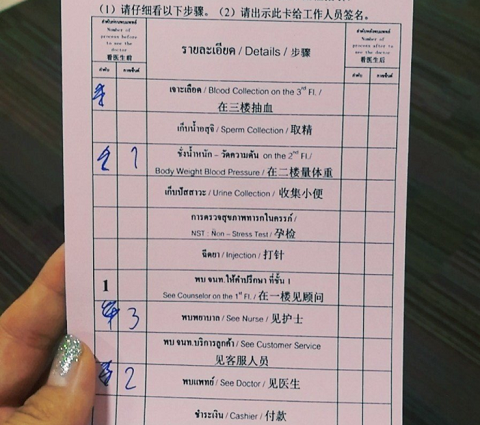 (1) 请仔细看以下步骤。(2) 请出示此卡给工作人员签名。
ลำดับก่อนพบแพทย์
Number of process before to see the doctor
看医生前
รายละเอียด / Details / 步骤
ลำดับหลังพบแพทย์
Number of process after to see the doctor
看医生后
เจาะเลือด / Blood Collection on the 3rd Fl. /
在三楼抽血
เก็บน้ำอสุจิ / Sperm Collection / 取精
7
ชั่งน้ำหนัก - วัดความดัน on the 2nd Fl./
Body Weight Blood Pressure / 在二楼量体重
เก็บปัสสาวะ / Urine Collection / 收集小便
การตรวจสุขภาพทารกในครรภ์ /
NST : Non - Stress Test / 孕检
ฉีดยา / Injection / 打针
1
พบ จนท.ให้คำปรึกษา ที่ชั้น 1
See Counselor on the 1st Fl. / 在一楼见顾问
3
พบพยาบาล / See Nurse / 见护士
พบ จนท.บริการลูกค้า / See Customer Service
见客服人员
2
พบแพทย์ / See Doctor / 见医生
ชำระเงิน / Cashier / 付款